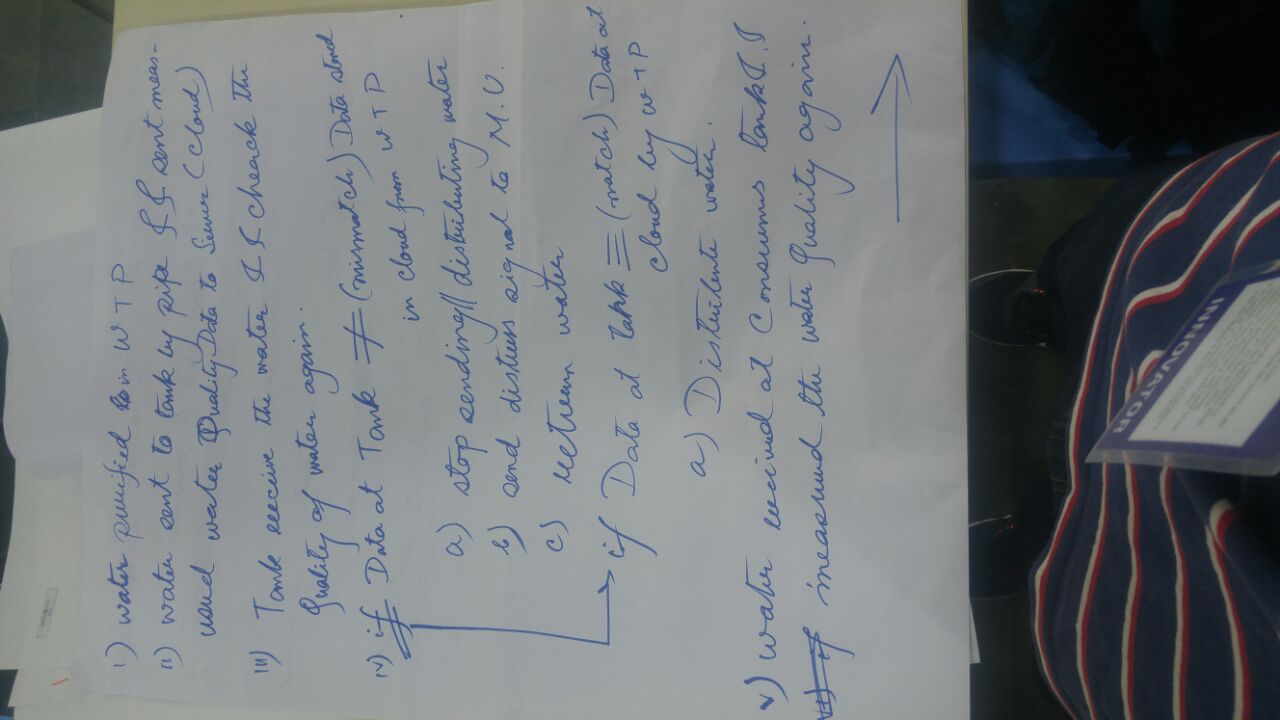 i) water purified in WTP
ii) water sent to tank by pipe & sent meas-
ured water Quality Data to Server (Cloud)
iii) Tank receive the water & cheack the
Quality of water again.
iv) if Data at Tank ≠ (mismatch) Data stored
in cloud from WTP
a) stop sending// distributing water
b) send distress signal to M.U.
c) retrean water
→ if Data at tank ≡ (match) Data at
cloud by WTP
a) Distribute water.
v) water received at Consumus tank
measured the water Quality again.
→
INNOVATOR